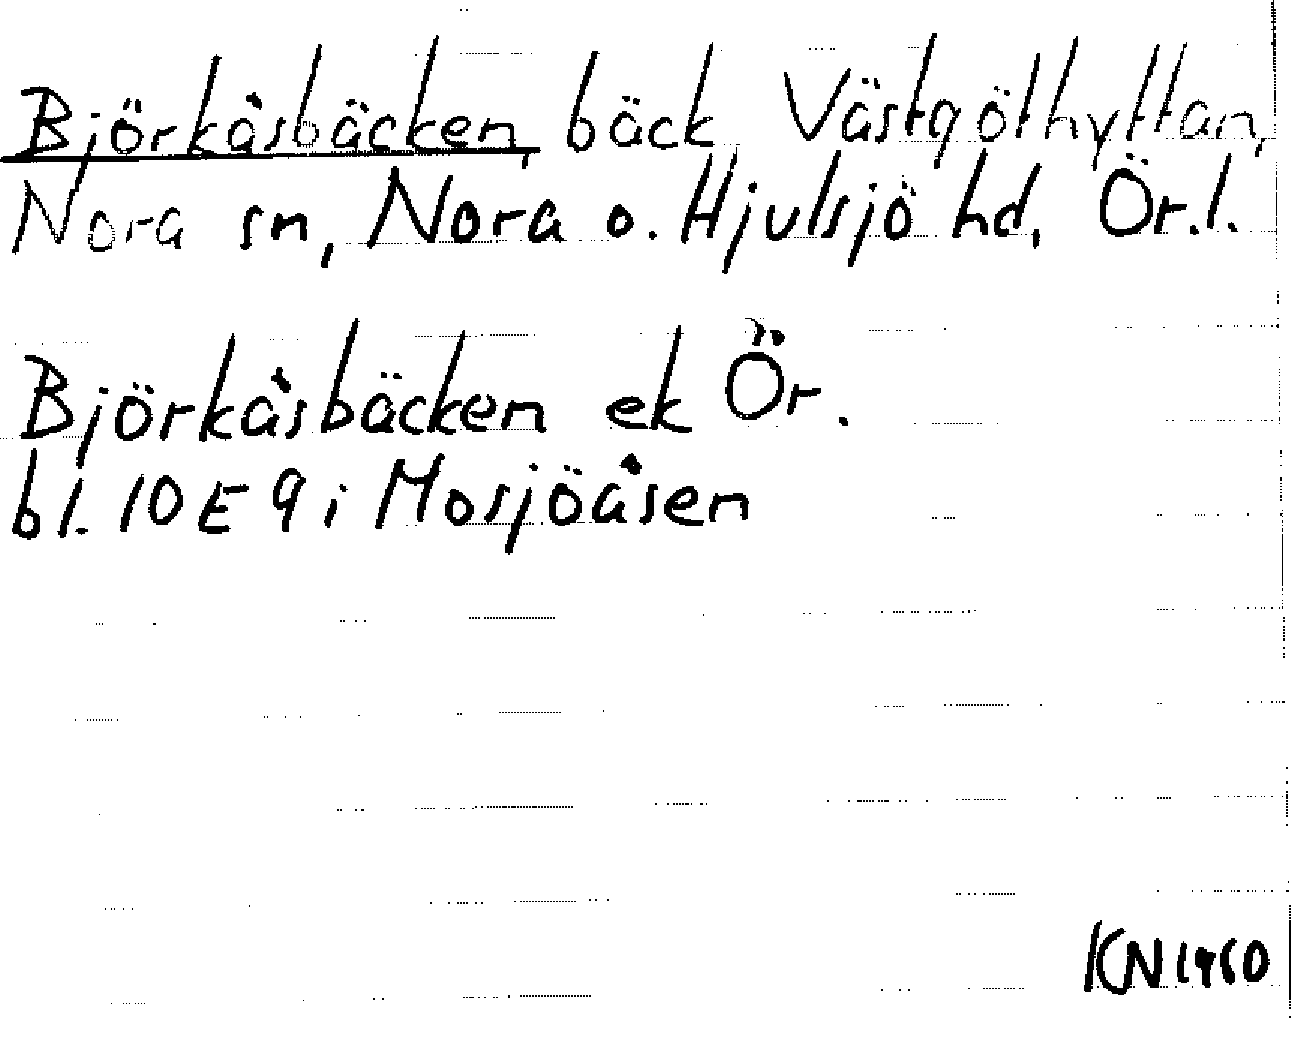 Björkåsbäcken, bäck Västgöthyttan,
Nora sn, Nora o. Hjulsjö hd, Ör.l.
Björkåsbäcken ek Ör.
bl. 10E9i Mosjöåsen
KN 1960